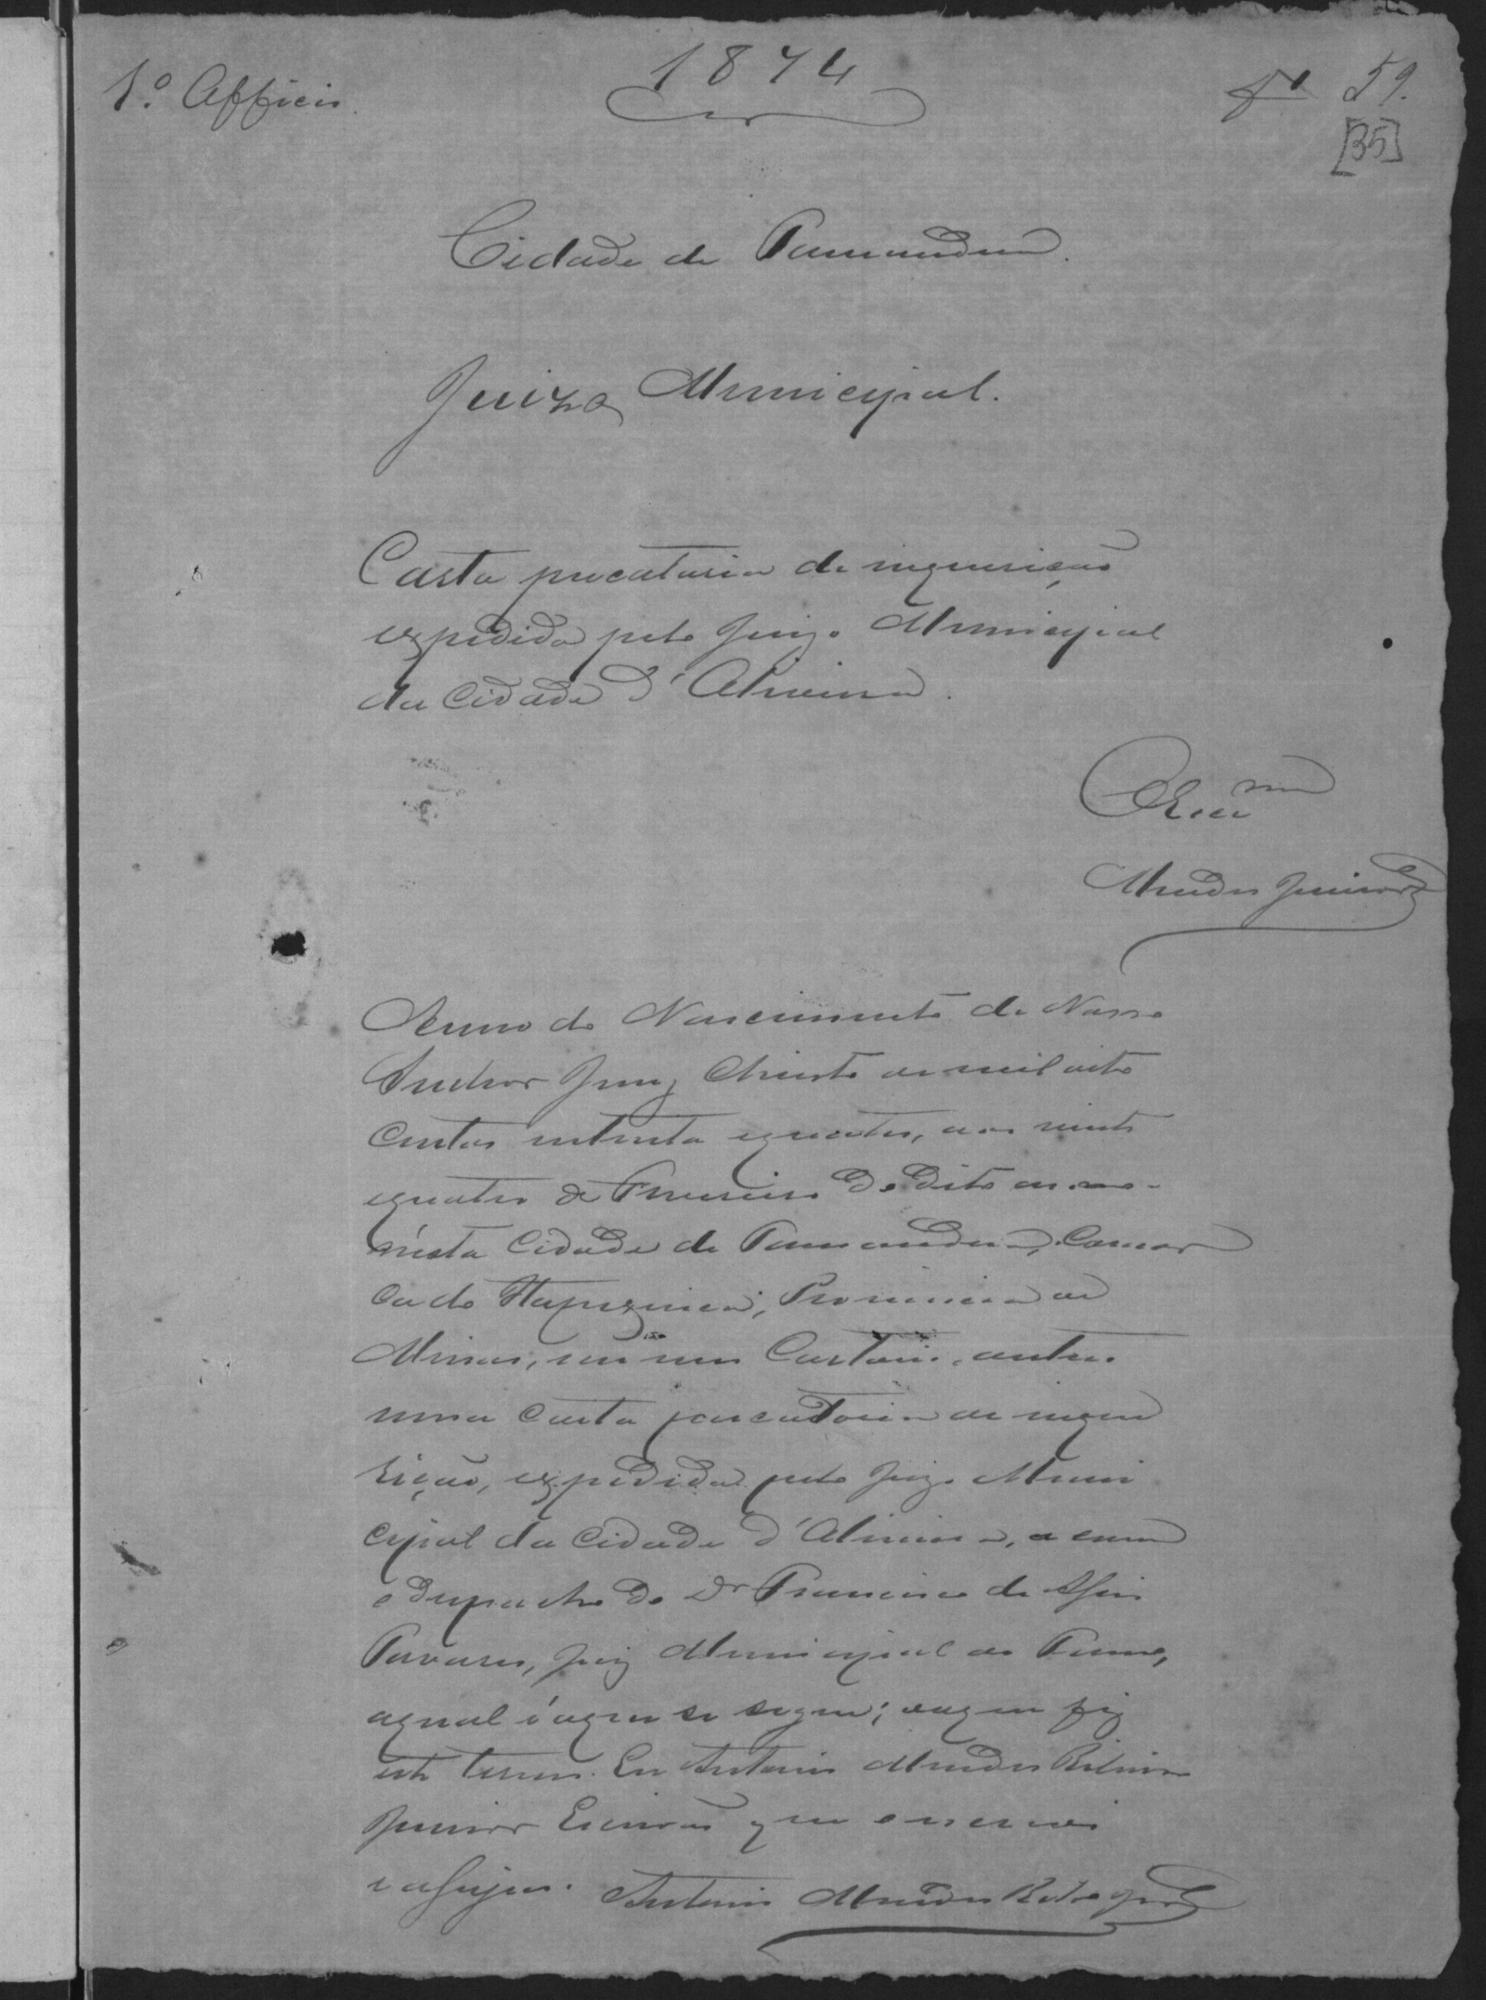 1874
1º Officio.
fl 59.
[35]
Cidade de Tamanduá.
Juizo Municipal.
Carta precatoria de inquirição
expedida pelo Juizo Municipal
da Cidade d'Oliveira.
Escr.m
Mendes Junior
Anno do Nascimento de Nosso
Senhor Jesus Christo de mil oito
centos setenta e quatro, aos vinte
e quatro de Fevereiro do dito anno
n'esta Cidade de Tamanduá, Comar
ca do Itapecirica, Provincia de
Minas, em meu Cartorio, autuo
uma Carta precatoria de inqui
rição, expedida pelo Juizo Muni
cipal da Cidade d'Oliveira, e com
o despacho do Dr Francisco de Assis
Tavares, Juiz Municipal do Termo,
a qual é a que se segue; do que fiz
este termo. Eu Antonio Mendes Ribeiro
Junior Escrivão que o escrevi
e assignei. Antonio Mendes Ribro Jor